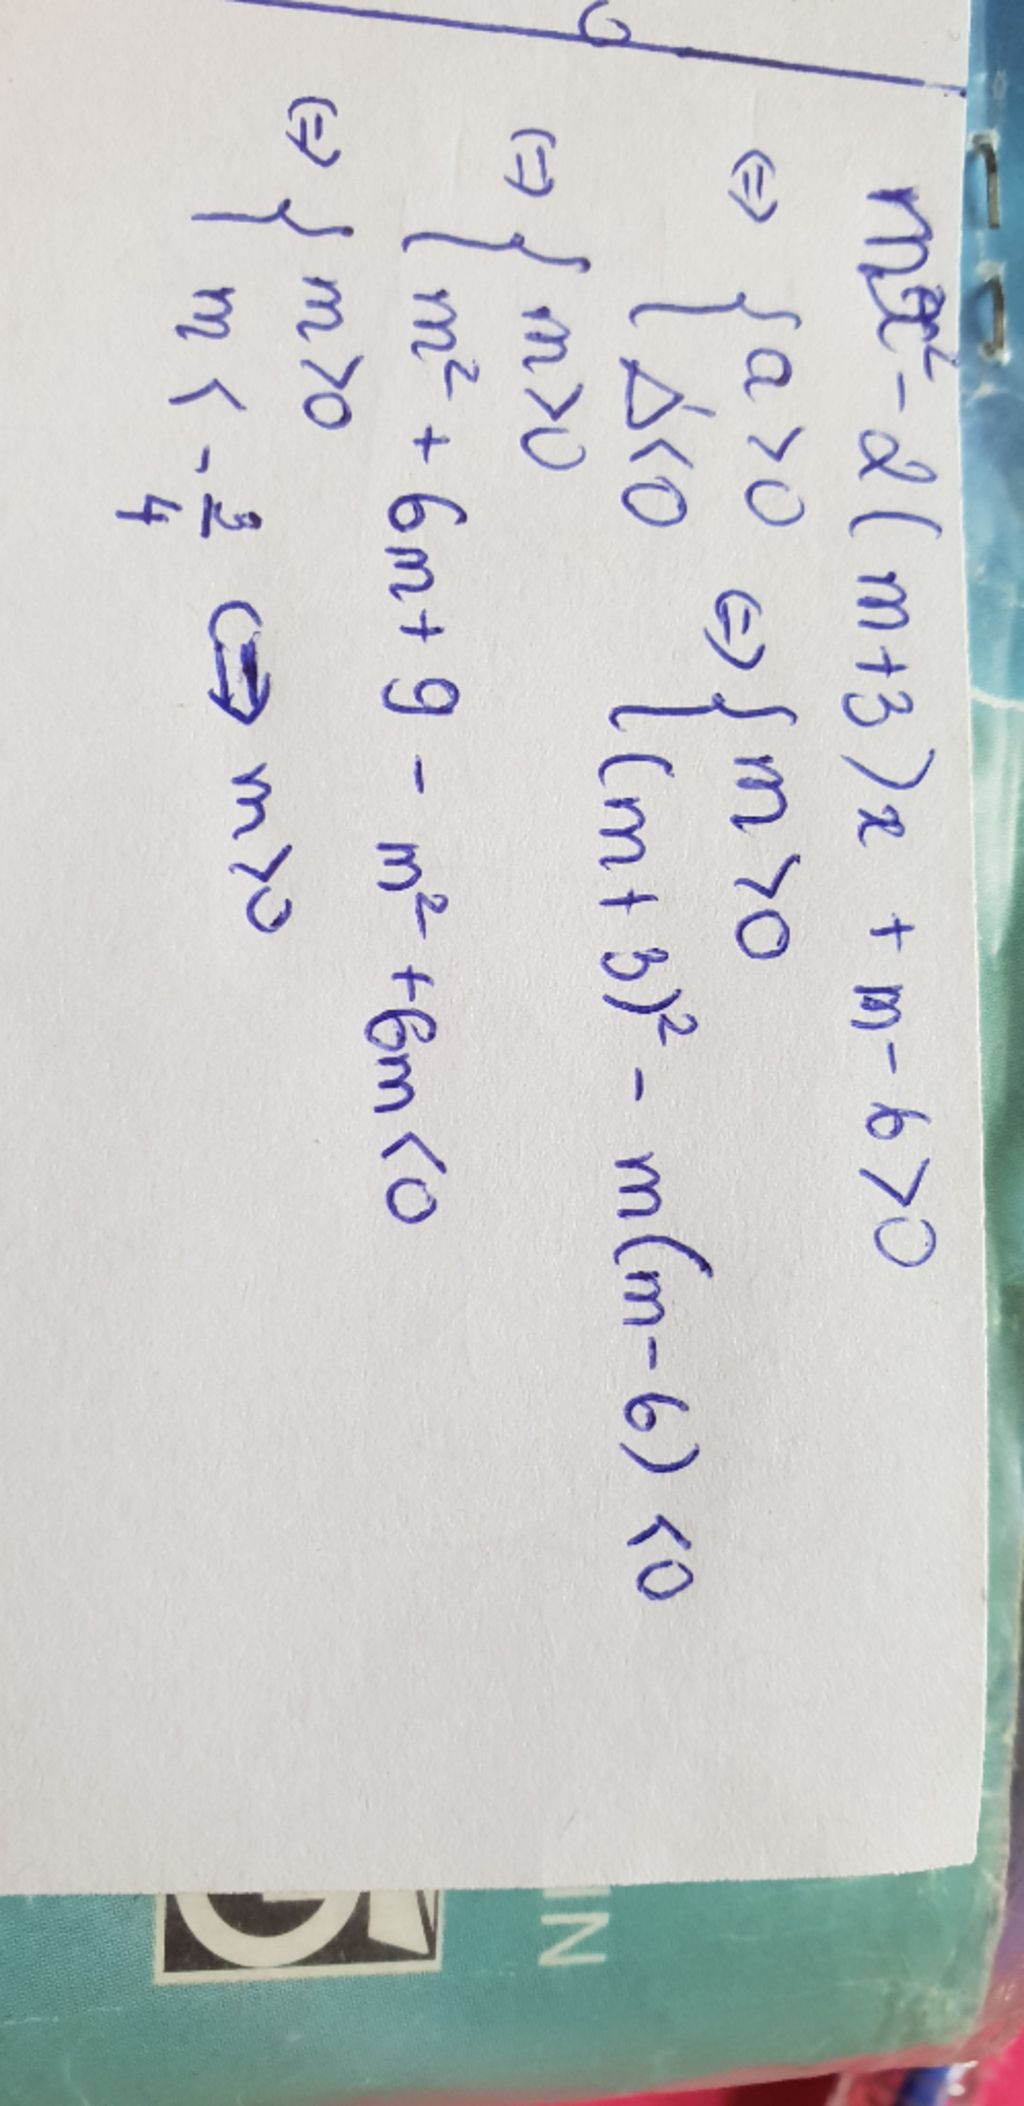 mx² - 2(m+3)x + m - 6 > 0
⇔ { a > 0 ⇔ { m > 0
{ Δ' < 0 { (m+3)² - m(m-6) < 0
⇔ { m > 0
{ m² + 6m + 9 - m² + 6m < 0
⇔ { m > 0
{ m < -3/4 ⇔ m > 0
IN